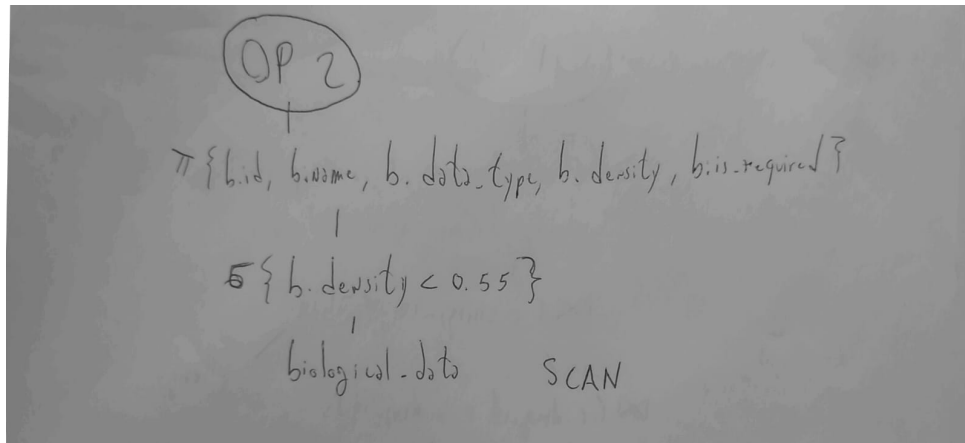 OP 2
π {b.id, b.name, b. data_type, b. density, b.is_required}
σ { b. density < 0.55 }
biological_data SCAN